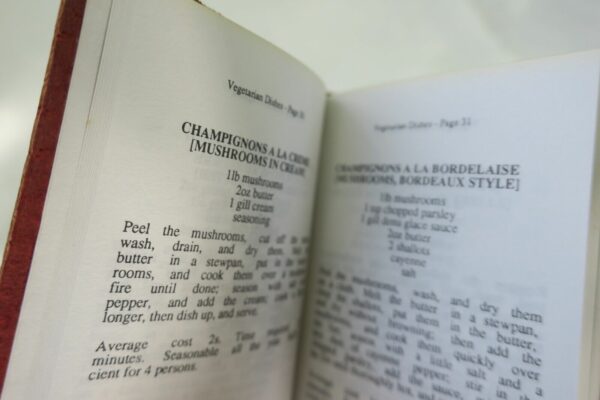 Vegetarian Dishes - Page
CHAMPIGNONS A LA CREME
[MUSHROOMS IN CREAM]
1lb mushrooms
2oz butter
1 gill cream
seasoning
Peel the mushrooms, cut off the
wash, drain, and dry then.
butter in a stewpan, put in the
rooms, and cook them over a
fire until done; season with
pepper, and add the cream; cook
longer, then dish up, and serve.
Average cost 2s. Time
minutes. Seasonable all the
cient for 4 persons.
Vegetarian Dishes - Page 31
CHAMPIGNONS A LA BORDELAISE
[MUSHROOMS, BORDEAUX STYLE]
1lb mushrooms
chopped parsley
1 gill demi glace sauce
2oz butter
2 shallots
cayenne
salt
the mushrooms, wash, and dry them
a cloth. Melt the butter in a stewpan,
shallots, put them in the butter,
without browning; then add the
and cook them quickly over
with a little salt and a
cayenne pepper; stir in the
add the sauce,
thoroughly hot, and